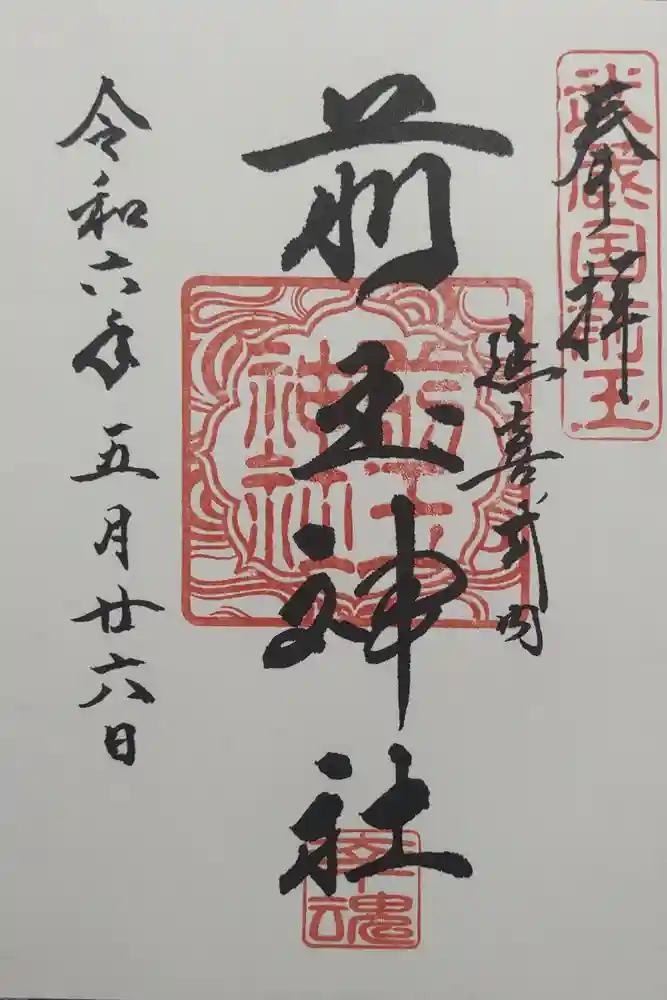 奉拝
武蔵国前玉
延喜式内
前玉神社
前玉神社
幸魂
令和六年五月廿六日